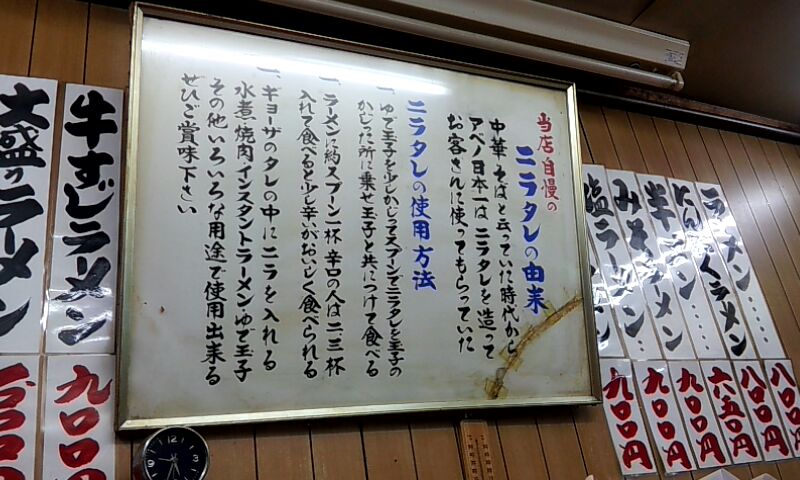 ラーメン……
ラーメン
みそラーメン
塩ラーメン
八〇〇円
八〇〇円
六五〇円
九〇〇円
九〇〇円
九〇〇円
当店自慢の
ニラタレの由来
中華そばと云っていた時代から
アベノ日本一はニラタレを造って
お客さんに使ってもらっていた
ニラタレの使用方法
一、ゆで玉子を少しかじってスプンでニラタレを玉子の
かじった所に乗せ玉子と共につけて食べる
一、ラーメンに約スプーン一杯辛口の人は二三杯
入れて食べると少し辛いがおいしく食べられる
一、ギョーザのタレの中にニラを入れる
水煮焼肉インスタントラーメンゆで玉子
その他いろいろな用途で使用出来る
ぜひご賞味下さい
牛すじラーメン
九〇〇円
大盛りラーメン